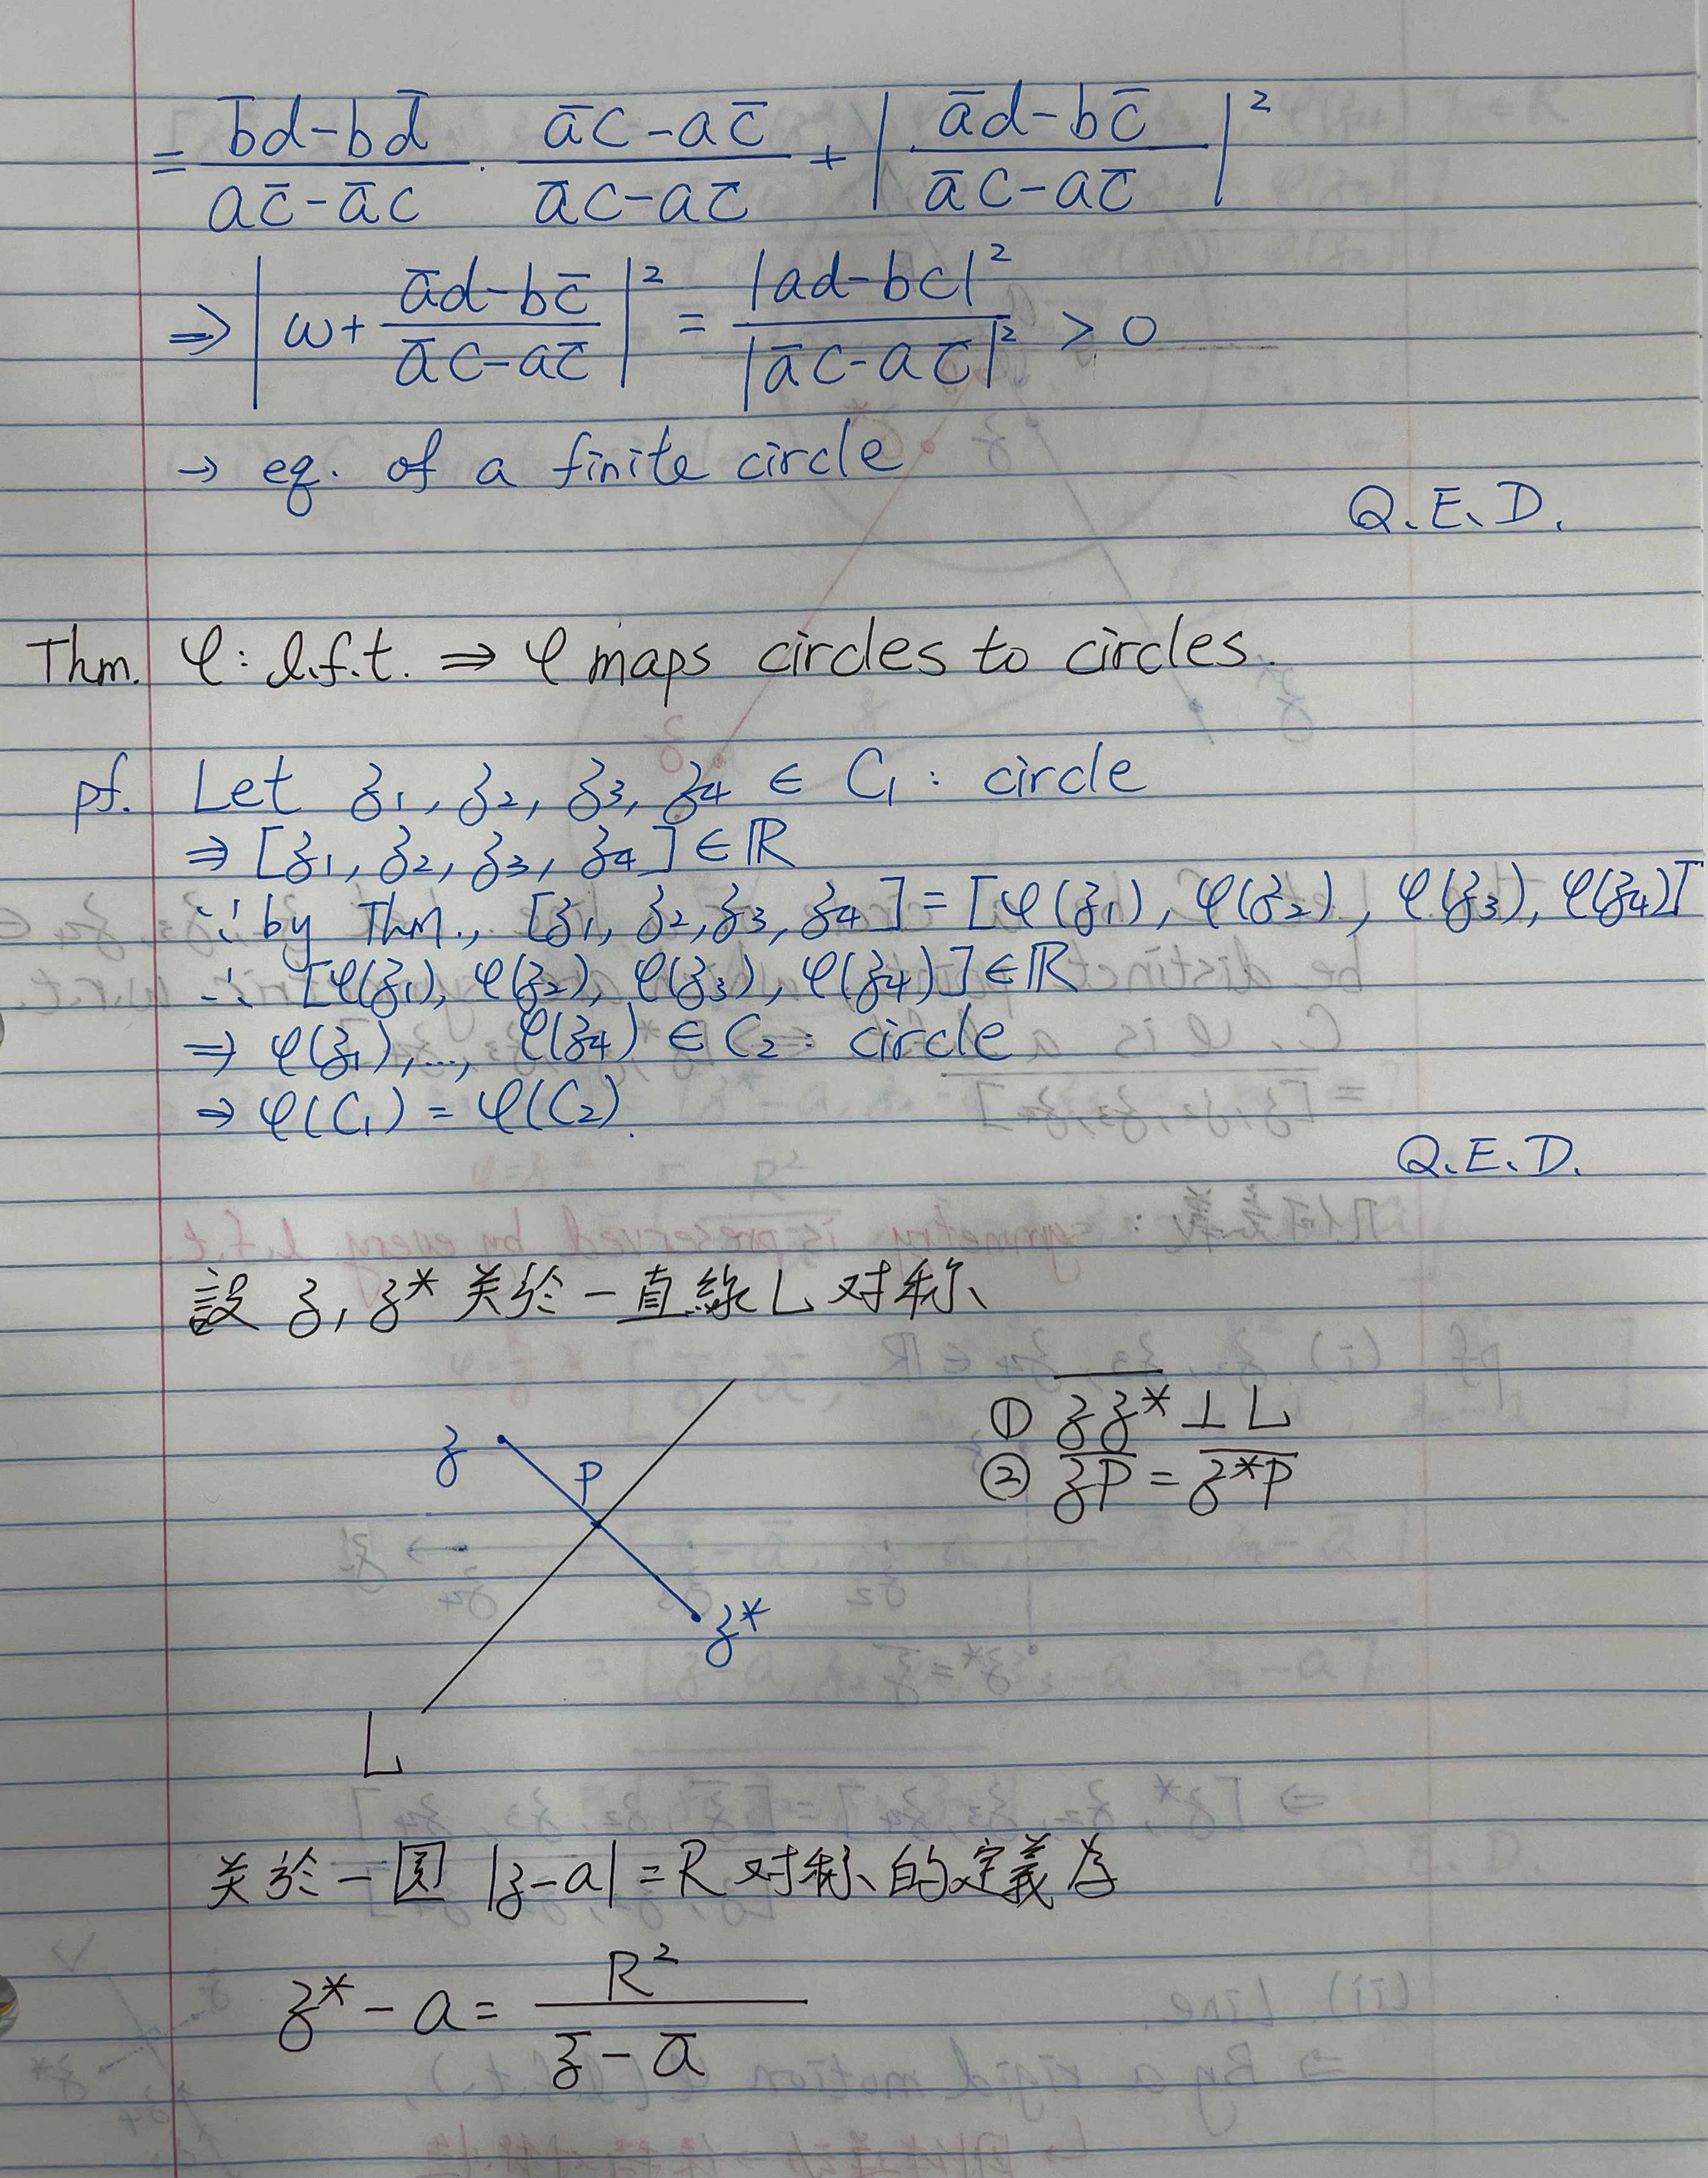 = (b̄d-bd̄)/(ac̄-āc) · (āc-ac̄)/(āc-ac̄) + |(ād-bc̄)/(āc-ac̄)|²
⇒ |ω+(ād-bc̄)/(āc-ac̄)|² = |ad-bc|²/|āc-ac̄|² > 0
→ eq. of a finite circle
Q.E.D.
Thm. φ: l.f.t. ⇒ φ maps circles to circles.
pf. Let z₁, z₂, z₃, z₄ ∈ C₁ : circle
⇒ [z₁, z₂, z₃, z₄] ∈ ℝ
∵ by Thm., [z₁, z₂, z₃, z₄] = [φ(z₁), φ(z₂), φ(z₃), φ(z₄)]
∴ [φ(z₁), φ(z₂), φ(z₃), φ(z₄)] ∈ ℝ
⇒ φ(z₁), ..., φ(z₄) ∈ C₂ : circle
⇒ φ(C₁) = φ(C₂).
Q.E.D.
設 z, z* 关於一直線 L 对称
z
P
z*
L
① z̅z̅*̅ ⊥ L
② z̅P̅ = z̅*̅P̅
关於一圆 |z-a| = R 对称的定義为
z* - a = R²/(z̄ - ā)